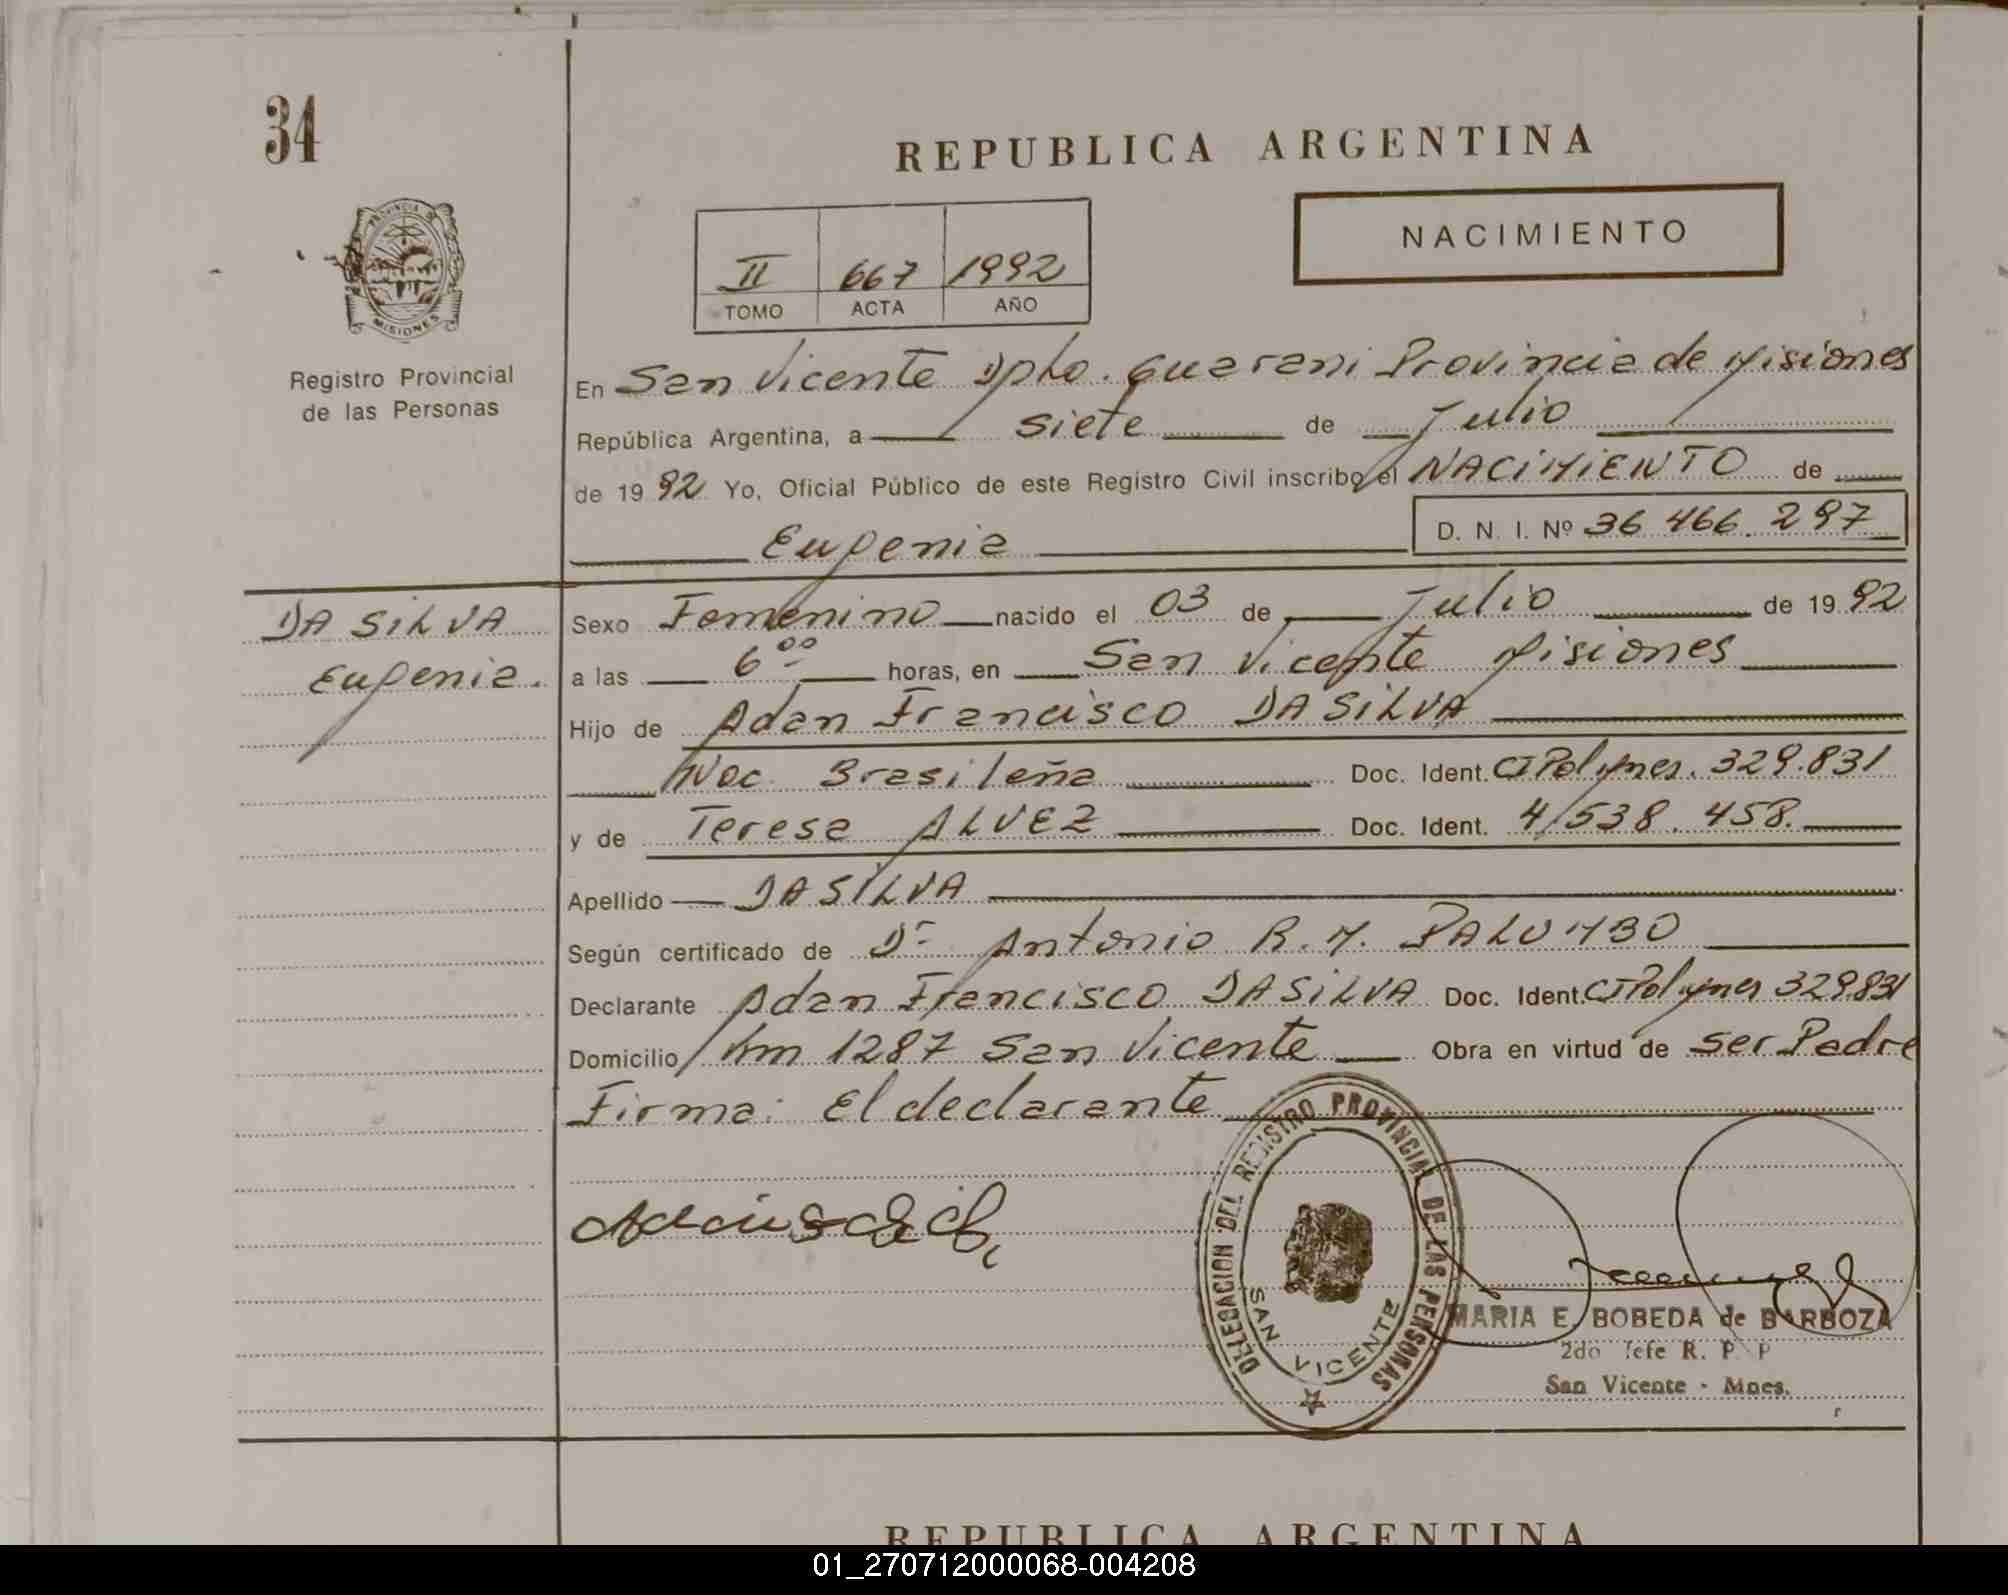 34
REPUBLICA ARGENTINA
NACIMIENTO
II 667 1992
TOMO ACTA AÑO
PROVINCIA DE
MISIONES
Registro Provincial
de las Personas
En San Vicente Dpto. Guarani Provincia de Misiones
República Argentina, a siete de Julio
de 1992 Yo, Oficial Público de este Registro Civil inscribo el NACIMIENTO de
Eugenia D. N. I. Nº 36 466.297
DA SILVA
Eugenia.
Sexo Femenino nacido el 03 de Julio de 1992
a las 6⁰⁰ horas, en San Vicente Misiones
Hijo de Adan Francisco DA SILVA
Nac. Brasileña Doc. Ident. CI Pol. Mnes. 329.831
y de Teresa ALVEZ Doc. Ident. 4/538.458.
Apellido DA SILVA
Según certificado de Dr Antonio R. M. PALUMBO
Declarante Adan Francisco DA SILVA Doc. Ident. CI Pol Mnes 329831
Domicilio Km 1287 San Vicente Obra en virtud de ser Padre
Firma: El declarante
DELEGACION DEL REGISTRO PROVINCIAL DE LAS PERSONAS
SAN VICENTE
MARIA E. BOBEDA de BARBOZA
2do Jefe R. P. P
San Vicente - Mnes.
REPUBLICA ARGENTINA
01_270712000068-004208